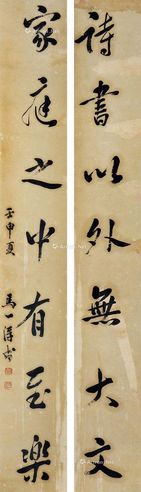 詩書以外無大文
家庭之中有至樂
壬申夏
馬一浮